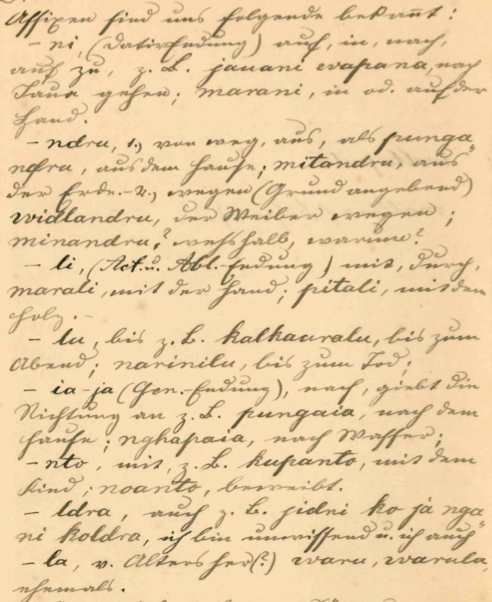 Affixen sind uns folgende bekannt:
– ni, (Dativendung) auf, in, nach,
auf zu, z. B. jauani wapana, nach
Jaua gehen; marani, in od. auf der
Hand.
– ndru, 1.) von weg, aus, als punga"
ndru, aus dem Hause; mitandru, aus
der Erde. – 2.) wegen (Grund angebend)
widlandru, der Weiber wegen;
minandru? weshalb, warum?
– li, (Act. u. Abl.-Endung) mit, durch,
marali, mit der Hand; pitali, mit dem
Holz. –
– lu, bis z. B. kalkauralu, bis zum
Abend; narinilu, bis zum Tod;
– ia-ja (Gen.-Endung), nach, giebt die
Richtung an z. B. pungaia, nach dem
Hause; nghapaia, nach Wasser;
– nto, mit, z. B. kupanto, mit dem
Kind; noanto, beweibt.
– ldra, auch z. B. jidni ko ja nga"
ni koldra, ich bin unwissend u. ich auch
– la, v. Alters her(?) waru, warula,
ehemals.